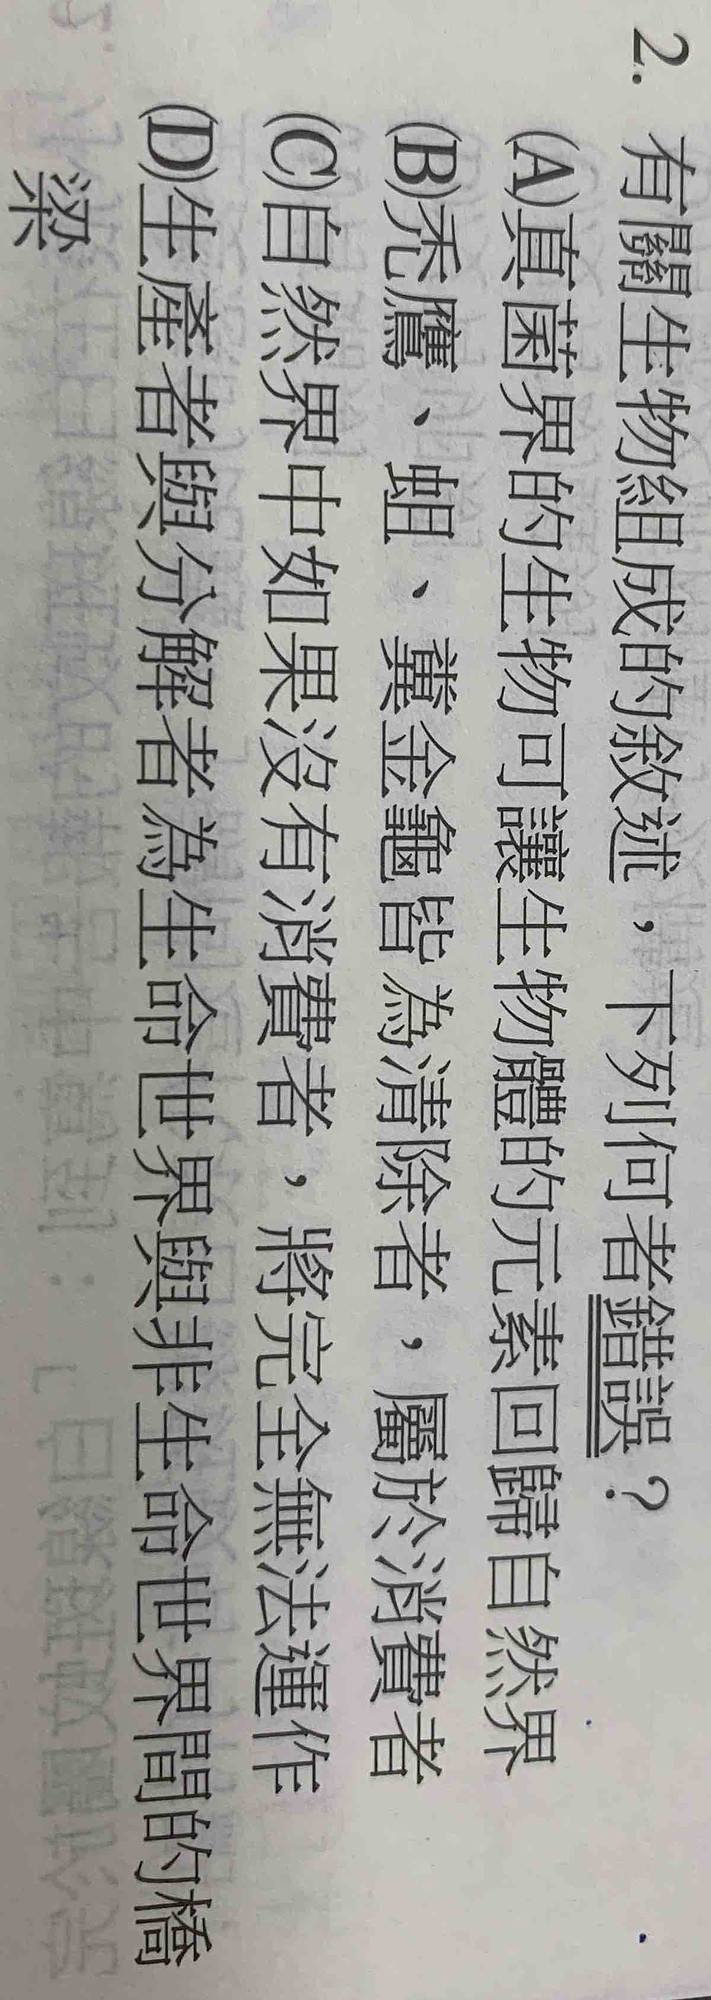 2. 有關生物組成的敘述，下列何者錯誤？
(A)真菌界的生物可讓生物體的元素回歸自然界
(B)禿鷹、蛆、糞金龜皆為清除者，屬於消費者
(C)自然界中如果沒有消費者，將完全無法運作
(D)生產者與分解者為生命世界與非生命世界間的橋
梁